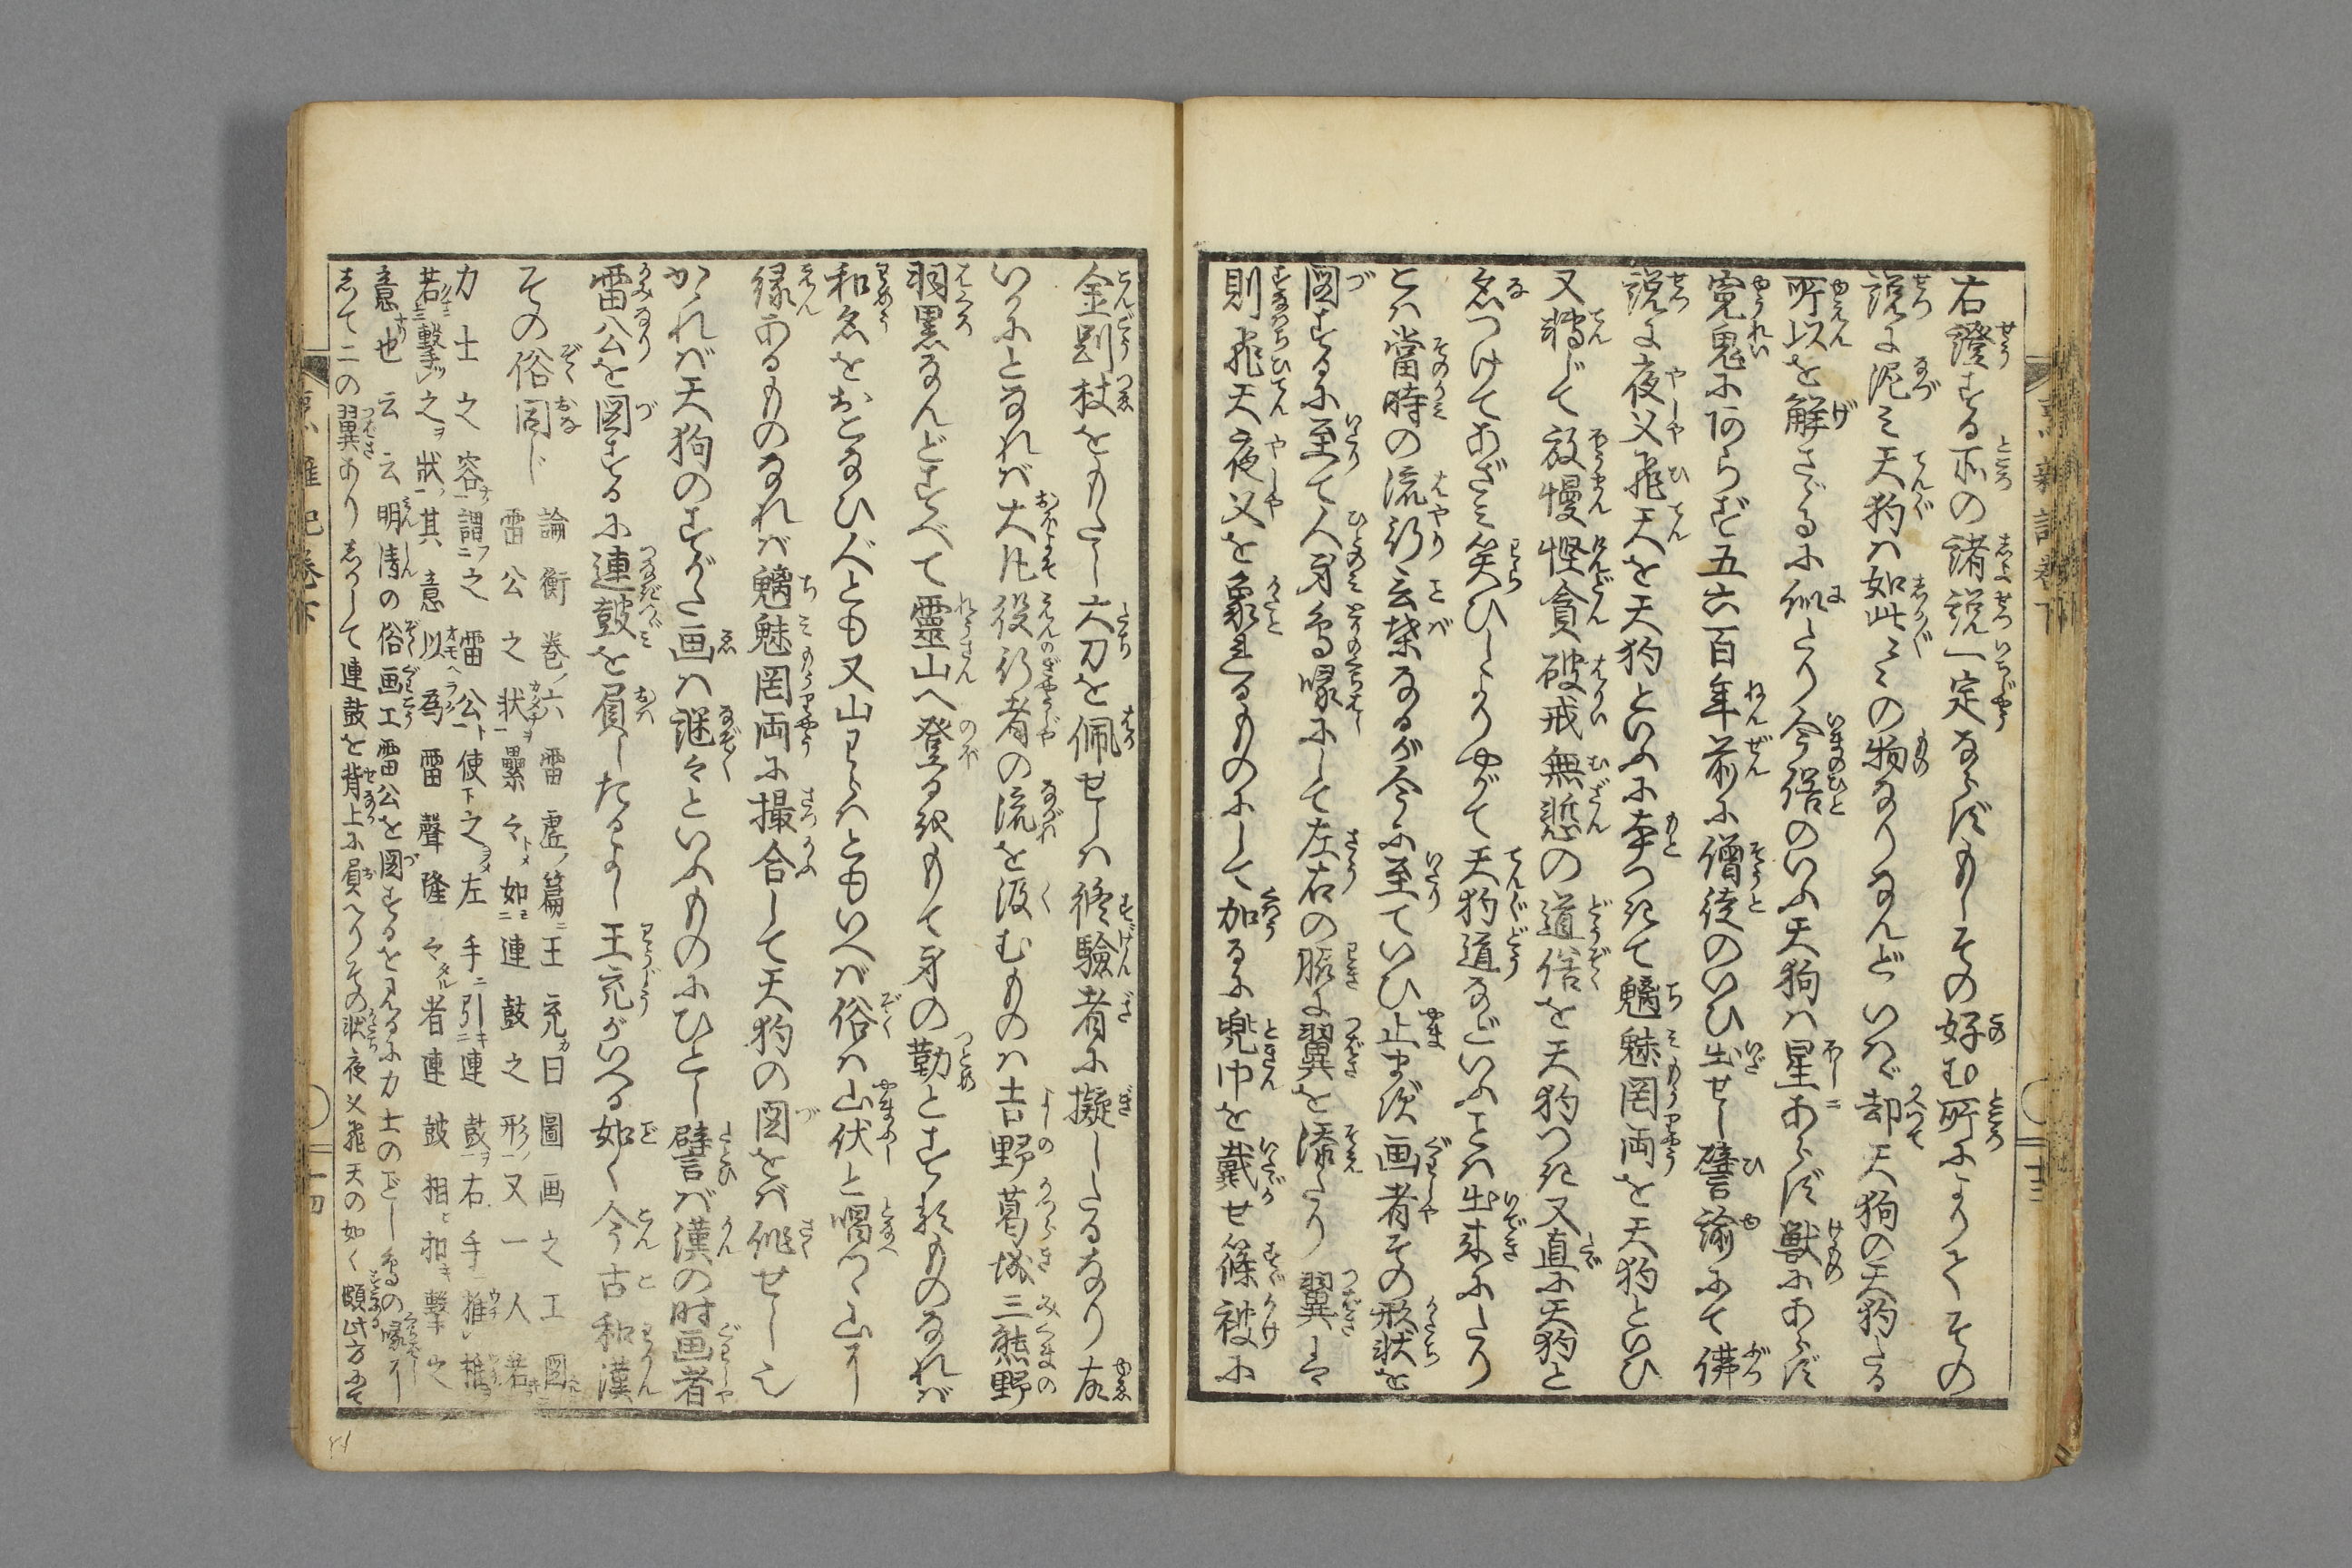 右證する所の諸説一定ならずもしその好む所によりてその
説に泥み天狗は如此々々の物なりなんどいはゞ却天狗の天狗たる
所以を解さゞるに似たり今俗のいふ天狗は星にあらず獣にあらず
寃鬼にあらず五六百年前に僧徒のいひ出せし譬諭にて佛
説に夜叉飛天を天狗といふに本つきて魑魅罔両を天狗といひ
又轉じて放慢慳貪破戒無慙の道俗を天狗つき又直に天狗と
名つけてあざみ笑ひしよりやがて天狗道などいふことは出来にたり
とは當時の流行言葉なるが今に至ていひ止まず画者その形状を
図するに至て人身鳥喙にして左右の脇に翼を添たり翼は
則飛天夜叉を象れるものにして加るに兜巾を戴せ篠被に
金剛杖をもたし大刀を佩せしは修験者に擬したるなり故
いかにとなれば大凡役行者の流を汲むものは吉野葛城三熊野
羽黒なんどすべて靈山へ登るをもて身の勤とするものなれば
和名をおこなひ人とも又山わらはともいへば俗は山伏と唱つゝ山に
縁あるものなれば魑魅罔両に撮合して天狗の図をば作せし也
かゝれば天狗のすがた画は謎々といふものにひとし譬ば漢の時画者
雷公を図するに連鼓を負したるよし王充がいへる如く今古和漢
その俗同じ
論衡巻六雷虚篇王充曰圖画之工図
雷公之状纍々如連鼓之形又一人若
力士之容謂之雷公使之左手引連鼓右手推椎
若撃之状其意以為雷聲隆々者連鼓相扣撃之
意也云云明清の俗画工雷公を図するを見るに力士のごとし鳥の喙に
して二の翼ありしかして連鼓を背上に負へりその状夜叉飛天の如く頗此方にて
十三
十四